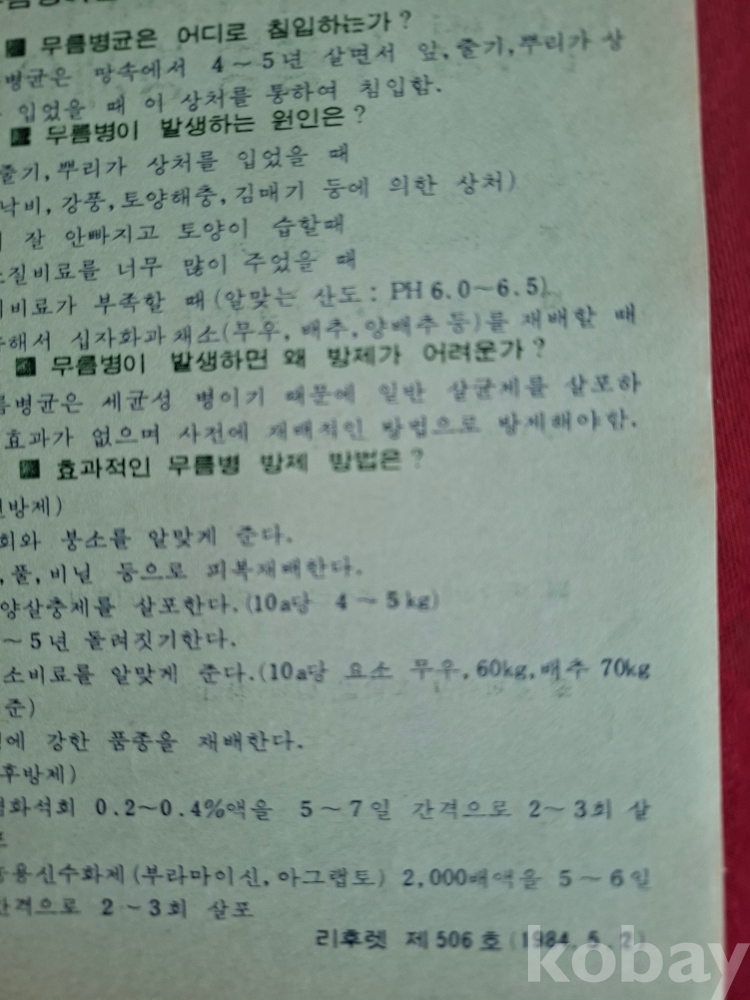 ■ 무름병균은 어디로 침입하는가?
병균은 땅속에서 4~5년 살면서 잎,줄기,뿌리가 상
입었을 때 이 상처를 통하여 침입함.
■ 무름병이 발생하는 원인은?
줄기,뿌리가 상처를 입었을 때
낙비,강풍,토양해충,김매기 등에 의한 상처)
잘 안빠지고 토양이 습할때
소질비료를 너무 많이 주었을 때
비료가 부족할 때(알맞는 산도: PH6.0~6.5)
해서 십자화과채소(무우,배추,양배추등)를 재배할 때
■ 무름병이 발생하면 왜 방제가 어려운가?
름병균은 세균성 병이기 때문에 일반 살균제를 살포하
효과가 없으며 사전에 재배적인 방법으로 방제해야함.
■ 효과적인 무름병 방제 방법은?
방제)
회와 붕소를 알맞게 준다.
,풀,비닐 등으로 피복재배한다.
양살충제를 살포한다.(10a당 4~5kg)
~5년 돌려짓기한다.
소비료를 알맞게 준다.(10a당 요소 무우,60kg,배추 70kg
준)
에 강한 품종을 재배한다.
후방제)
화석회 0.2~0.4%액을 5~7일 간격으로 2~3회 살
용신수화제(부라마이신,아그랩토) 2,000배액을 5~6일
간격으로 2~3회 살포
리후렛 제506호(1984.5.2)
kobay